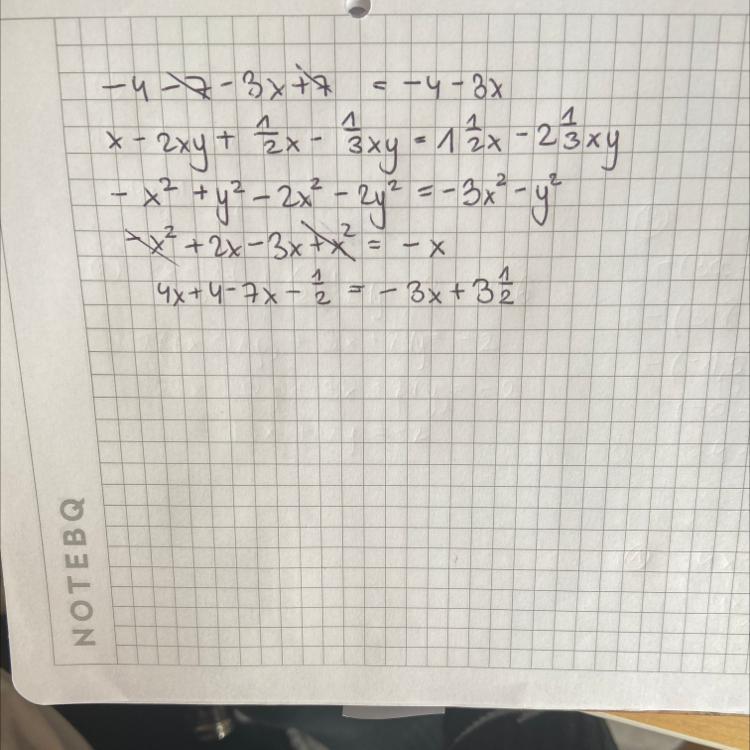 -4 -7 -3x+7 = -4-3x
x-2xy+ 1/2x- 1/3xy=1 1/2x-2 1/3xy
-x²+y²-2x²-2y²=-3x²-y²
-x²+2x-3x+x²= -x
4x+4-7x-1/2 = -3x+3 1/2
NOTEBQ